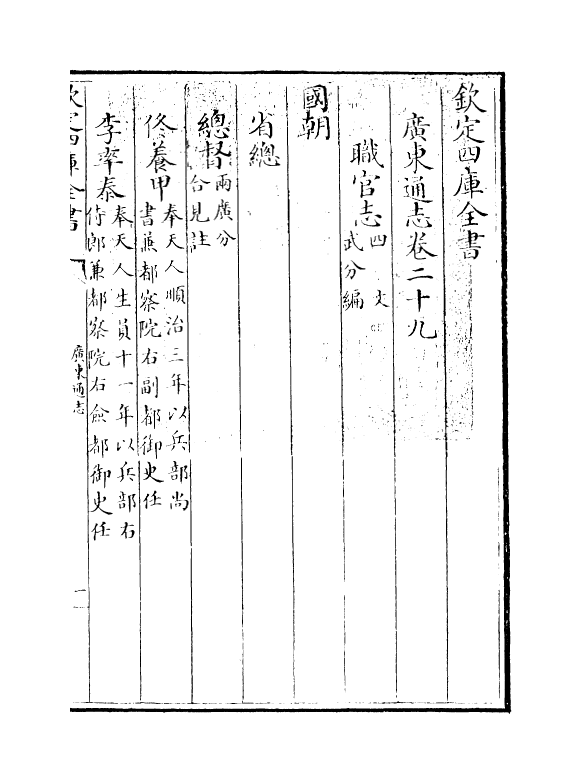 欽定四庫全書
廣東通志卷二十九
職官志四 文
武分編
國朝
省總
總督兩廣分
合見註
佟養甲奉天人順治三年以兵部尚
書兼都察院右副都御史任
李率泰奉天人生員十一年以兵部右
侍郎兼都察院右僉都御史任
欽定四庫全書
廣東通志
一